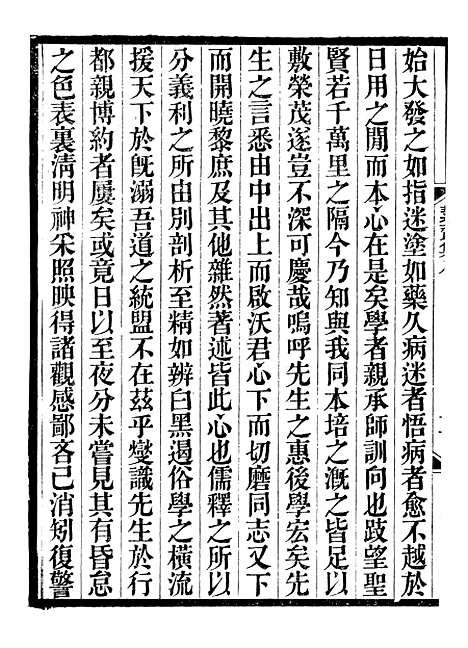 始大發之如指迷塗如藥久病迷者悟病者愈不越於
日用之閒而本心在是矣學者親承師訓向也跂望聖
賢若千萬里之隔今乃知與我同本培之溉之皆足以
敷榮茂遂豈不深可慶哉嗚呼先生之惠後學宏矣先
生之言悉由中出上而啟沃君心下而切磨同志又下
而開曉黎庶及其他雜然著述皆此心也儒釋之所以
分義利之所由別剖析至精如辨白黑遏俗學之橫流
援天下於旣溺吾道之統盟不在茲乎燮識先生於行
都親博約者屢矣或竟日以至夜分未嘗見其有昏怠
之色表裏淸明神采照映得諸觀感鄙吝已消矧復警